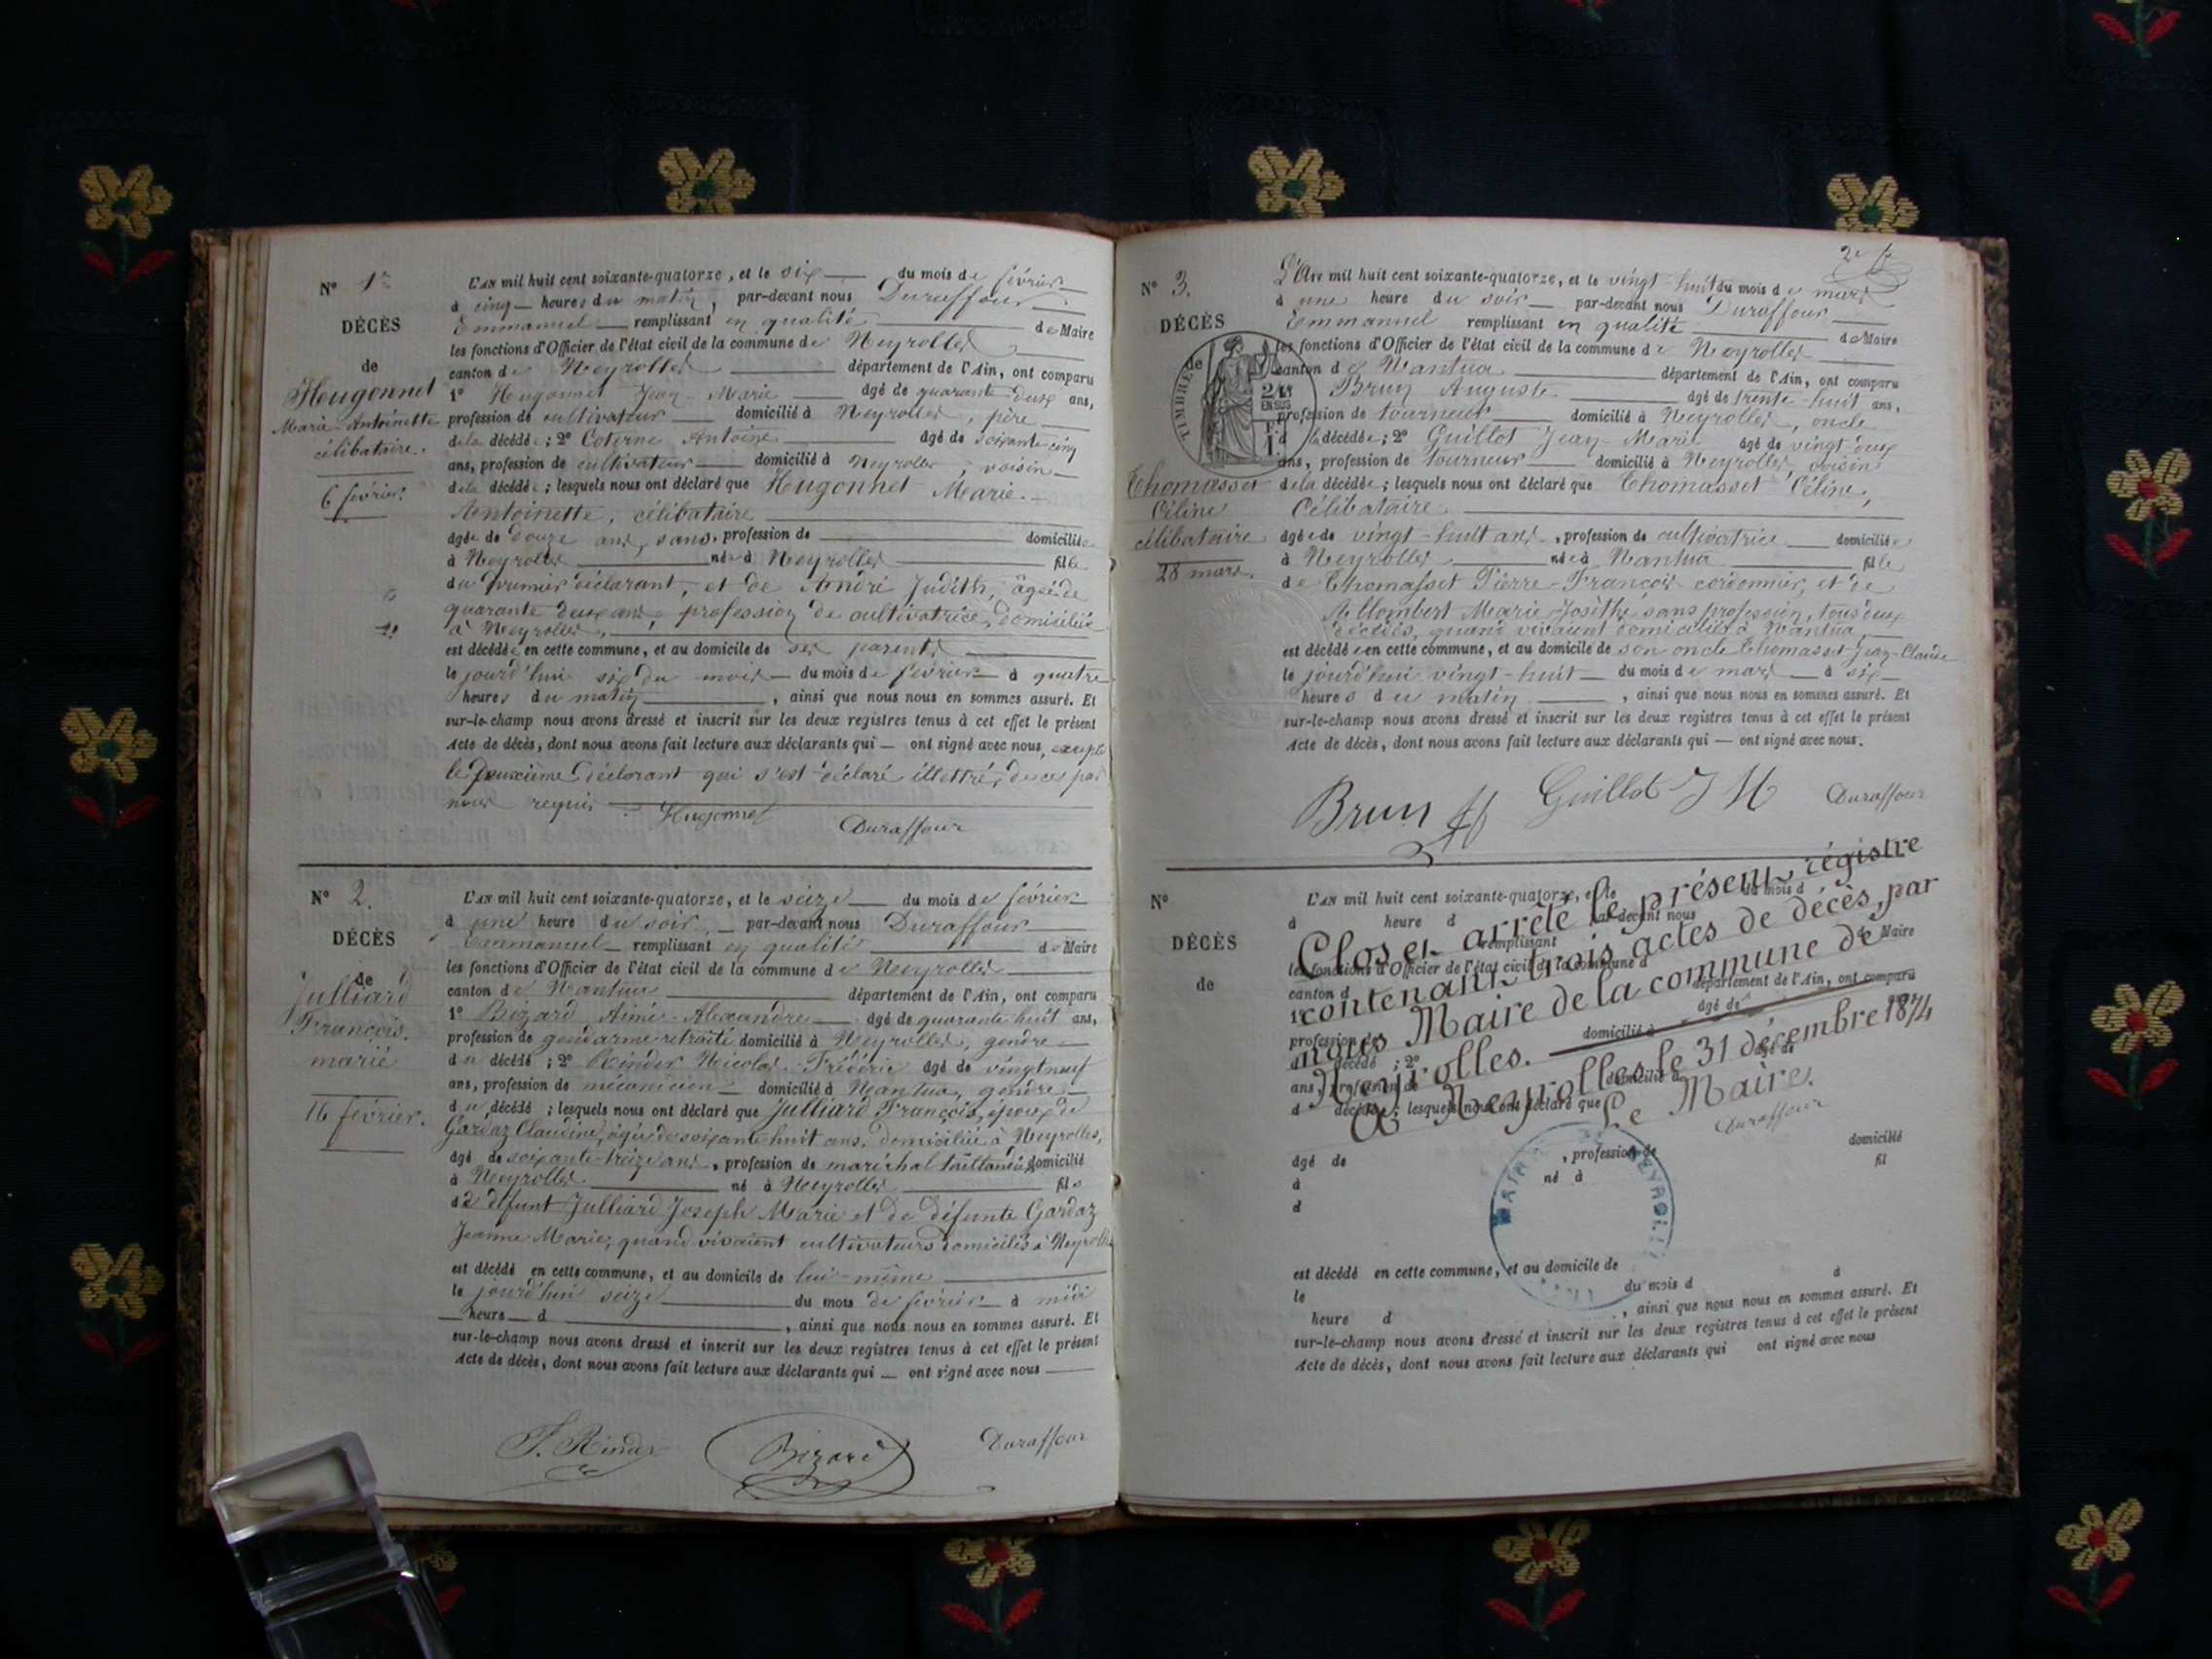 N° 1er
DÉCÈS
de
Hugonnet
Marie-Antoinette
célibataire.
6 février.
L'AN mil huit cent soixante-quatorze, et le six du mois de février
à cinq heures du matin, par-devant nous Duraffour
Emmanuel remplissant en qualité de Maire
les fonctions d'Officier de l'état civil de la commune de Neyrolles
canton de Neyrolles département de l'Ain, ont comparu
1° Hugonnet Jean-Marie âgé de quarante deux ans,
profession de cultivateur domicilié à Neyrolles, père
de la décédée; 2° Antoine âgé de soixante cinq
ans, profession de cultivateur domicilié à Neyrolles, voisin
de la décédée; lesquels nous ont déclaré que Hugonnet Marie-
Antoinette, célibataire
âgée de douze ans, sans, profession de domiciliée
à Neyrolles née à Neyrolles fille
du premier déclarant, et de André Judith, âgée de
quarante deux ans, profession de cultivatrice, domiciliée
à Neyrolles,
est décédée en cette commune, et au domicile de ses parents
le jourd'hui six du mois du mois de février à quatre
heures du matin, ainsi que nous nous en sommes assuré. Et
sur-le-champ nous avons dressé et inscrit sur les deux registres tenus à cet effet le présent
Acte de décès, dont nous avons fait lecture aux déclarants qui — ont signé avec nous, excepté
le deuxième déclarant qui s'est déclaré illettré, de ce par
nous requis.
Hugonnet Duraffour
N° 2.
DÉCÈS
de
Julliard
François.
marié
16 février.
L'AN mil huit cent soixante-quatorze, et le seize du mois de février
à une heure du soir, par-devant nous Duraffour
Emmanuel remplissant en qualité de Maire
les fonctions d'Officier de l'état civil de la commune de Neyrolles
canton de Nantua département de l'Ain, ont comparu
1° Bizard Aimé-Alexandre âgé de quarante huit ans,
profession de gendarme retraité domicilié à Neyrolles, gendre
du décédé; 2° Rinder Nicolas-Frédéric âgé de vingt neuf
ans, profession de mécanicien domicilié à Nantua, gendre
du décédé; lesquels nous ont déclaré que Julliard François, époux de
Gardaz Claudine, âgée de soixante huit ans, domiciliée à Neyrolles,
âgé de soixante-treize ans, profession de maréchal taillandier domicilié
à Neyrolles né à Neyrolles fils
de défunt Julliard Joseph Marie et de défunte Gardaz
Jeanne Marie, quand vivaient cultivateurs domiciliés à Neyrolles
est décédé en cette commune, et au domicile de lui-même
le jourd'hui seize du mois de février à midi
heure d, ainsi que nous nous en sommes assuré. Et
sur-le-champ nous avons dressé et inscrit sur les deux registres tenus à cet effet le présent
Acte de décès, dont nous avons fait lecture aux déclarants qui — ont signé avec nous
F. Rinder Bizard Duraffour
2e f
N° 3.
DÉCÈS
de
TIMBRE
2/10
EN SUS
Thomasset
Céline
célibataire
28 mars.
L'AN mil huit cent soixante-quatorze, et le vingt-huit du mois de mars
à une heure du soir par-devant nous Duraffour
Emmanuel remplissant en qualité de Maire
les fonctions d'Officier de l'état civil de la commune de Neyrolles
canton de Nantua département de l'Ain, ont comparu
Brun Auguste âgé de trente-huit ans,
profession de tourneur domicilié à Neyrolles, oncle
de la décédée; 2° Guillot Jean-Marie âgé de vingt deux
ans, profession de tourneur domicilié à Neyrolles, voisin
de la décédée; lesquels nous ont déclaré que Thomasset Céline,
Célibataire
âgée de vingt-huit ans, profession de cultivatrice domiciliée
à Neyrolles née à Nantua fille
de Thomasset Pierre-François cordonnier, et de
Allombert Marie-Josèthe sans profession, tous deux
décédés, quand vivaient domiciliés à Nantua
est décédée en cette commune, et au domicile de son oncle Thomasset Jean-Claude
le jourd'hui vingt-huit du mois de mars à six
heures du matin, ainsi que nous nous en sommes assuré. Et
sur-le-champ nous avons dressé et inscrit sur les deux registres tenus à cet effet le présent
Acte de décès, dont nous avons fait lecture aux déclarants qui — ont signé avec nous.
Brun Guillot J M Duraffour
N°
DÉCÈS
de
L'AN mil huit cent soixante-quatorze, et le du mois d
à heure d par-devant nous
remplissant de Maire
les fonctions d'Officier de l'état civil de la commune d
canton d département de l'Ain, ont comparu
1° âgé de
profession de domicilié à
d décédé; 2° âgé de
ans, profession de domicilié à
d décédé; lesquels nous ont déclaré que
Clos et arrêté le présent régistre
contenant trois actes de décès, par
nous Maire de la commune de
Neyrolles.
A Neyrolles, le 31 décembre 1874
Le Maire.
Duraffour
MAIRIE NEYROLLES
âgé de, profession de domicilié
à né à fil
d
est décédé en cette commune, et au domicile de
le du mois d à
heure d, ainsi que nous nous en sommes assuré. Et
sur-le-champ nous avons dressé et inscrit sur les deux registres tenus à cet effet le présent
Acte de décès, dont nous avons fait lecture aux déclarants qui ont signé avec nous